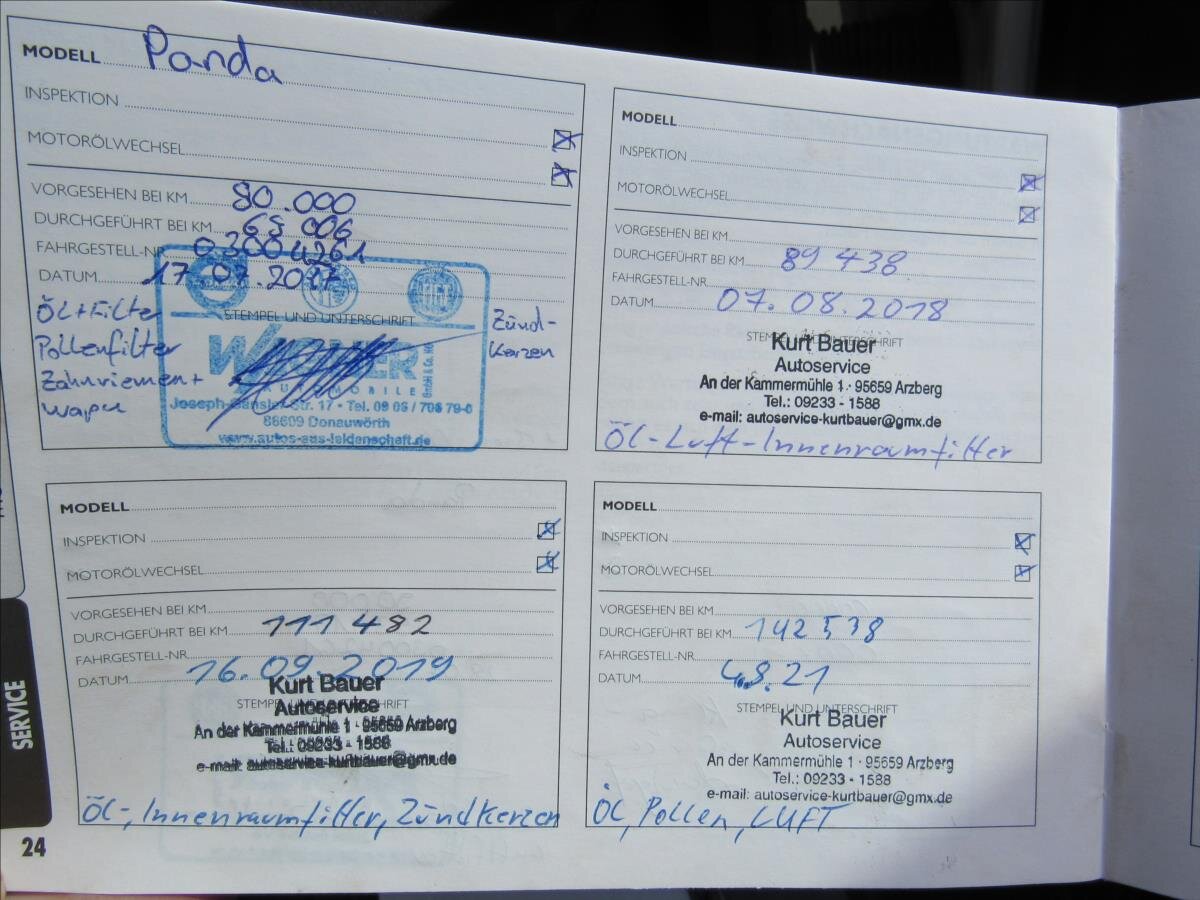 MODELL Panda
INSPEKTION
MOTORÖLWECHSEL
VORGESEHEN BEI KM 80.000
DURCHGEFÜHRT BEI KM 65 006
FAHRGESTELL-NR 03004261
DATUM 17.07.2017
Öl+Filter
Pollenfilter
Zahnriemen+
wapu
Zünd-
kerzen
STEMPEL UND UNTERSCHRIFT
AUTOMOBILE
GmbH & Co. KG
Str. 17 · Tel. 09 06 / 706 79-0
86609 Donauwörth
www.autos-aus-leidenschaft.de
MODELL
INSPEKTION
MOTORÖLWECHSEL
VORGESEHEN BEI KM
DURCHGEFÜHRT BEI KM 89 438
FAHRGESTELL-NR
DATUM 07.08.2018
STEMPEL UND UNTERSCHRIFT
Kurt Bauer
Autoservice
An der Kammermühle 1 · 95659 Arzberg
Tel.: 09233 - 1588
e-mail: autoservice-kurtbauer@gmx.de
Öl-Luft-Innenraumfilter
MODELL
INSPEKTION
MOTORÖLWECHSEL
VORGESEHEN BEI KM
DURCHGEFÜHRT BEI KM 111 482
FAHRGESTELL-NR
DATUM 16.09.2019
STEMPEL UND UNTERSCHRIFT
Kurt Bauer
Autoservice
An der Kammermühle 1 · 95659 Arzberg
Tel.: 09233 - 1588
e-mail: autoservice-kurtbauer@gmx.de
Öl-, Innenraumfilter, Zündkerzen
MODELL
INSPEKTION
MOTORÖLWECHSEL
VORGESEHEN BEI KM
DURCHGEFÜHRT BEI KM 142 538
FAHRGESTELL-NR
DATUM 4.8.21
STEMPEL UND UNTERSCHRIFT
Kurt Bauer
Autoservice
An der Kammermühle 1 · 95659 Arzberg
Tel.: 09233 - 1588
e-mail: autoservice-kurtbauer@gmx.de
Öl, Pollen, LUFT
SERVICE
24